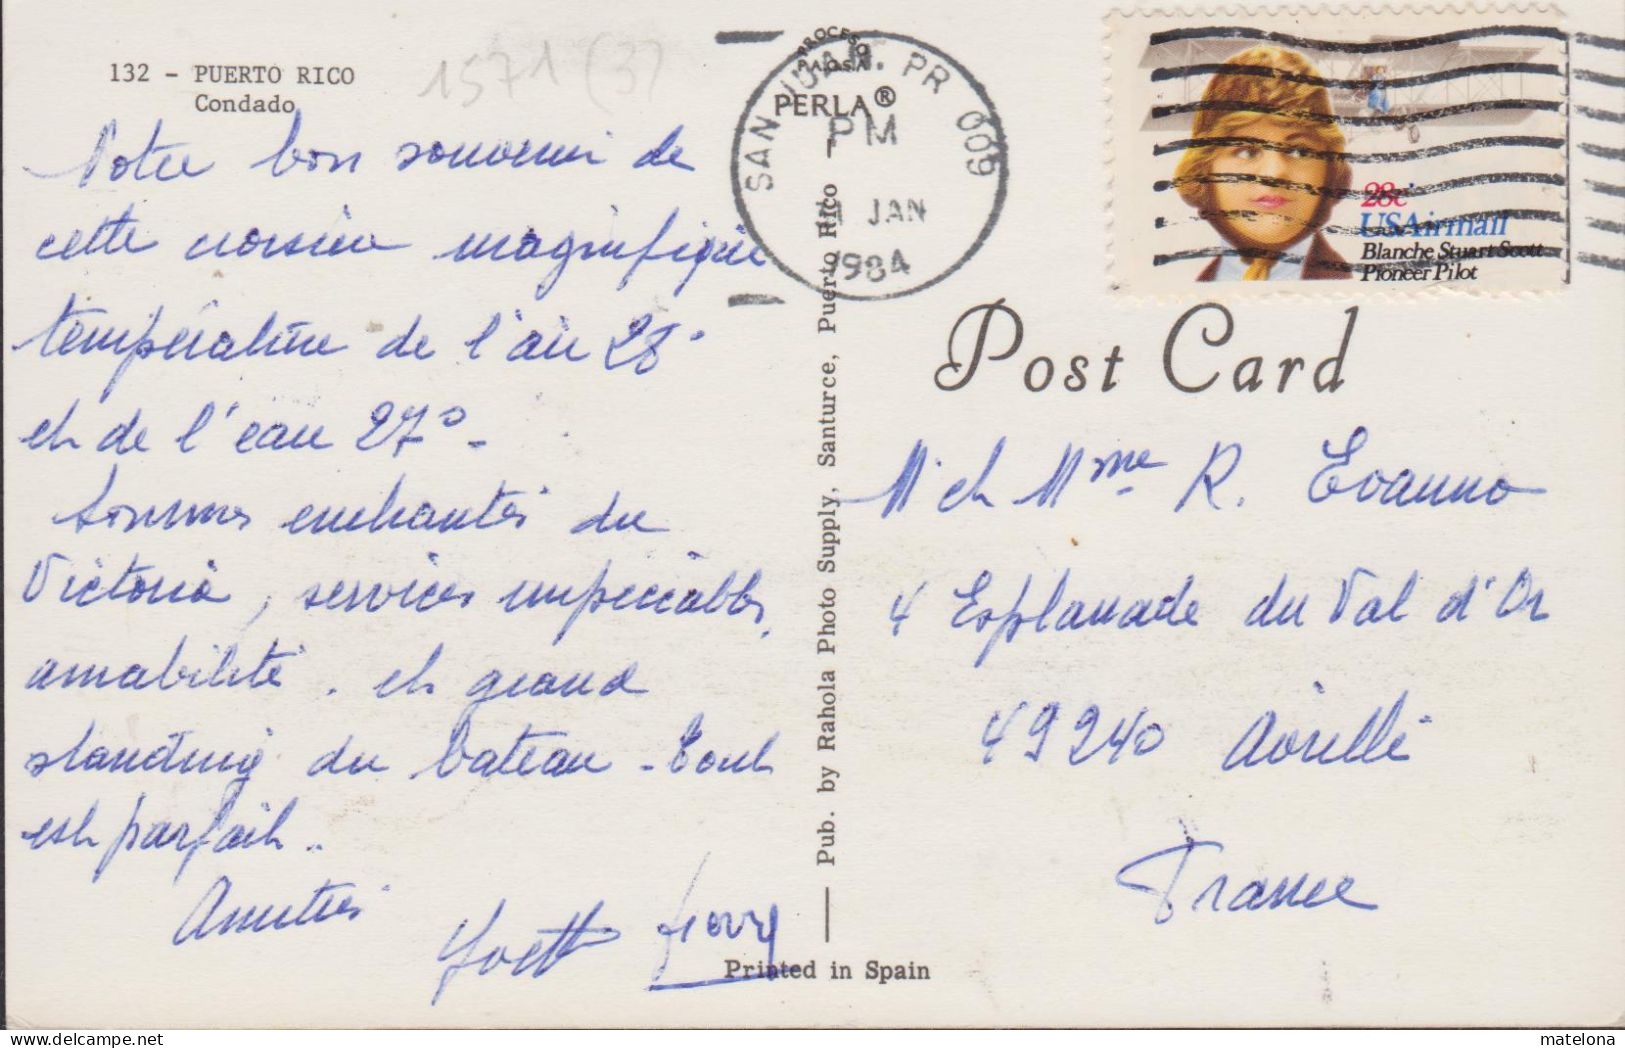 132 - PUERTO RICO
Condado
1571 (3)
Notre bon souvenir de
cette croisière magnifique
température de l'air 28°
et de l'eau 27° -
Sommes enchantés du
Victoria, services impeccables,
amabilité. et grand
standing du bateau - Tout
est parfait..
Amitiés
Yvette
PROCESO
PALOSA
PERLA®
SAN JUAN, PR 009
PM
JAN
1984
Pub. by Rahola Photo Supply, Santurce, Puerto Rico
Printed in Spain
28c
USAirmail
Blanche Stuart Scott
Pioneer Pilot
Post Card
M et Mme R. Evanno
4 Esplanade du Val d'Or
49240 Avrillé
France
matelona